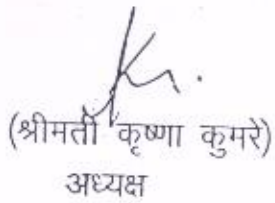 (श्रीमती कृष्णा कुमरे)
अध्यक्ष